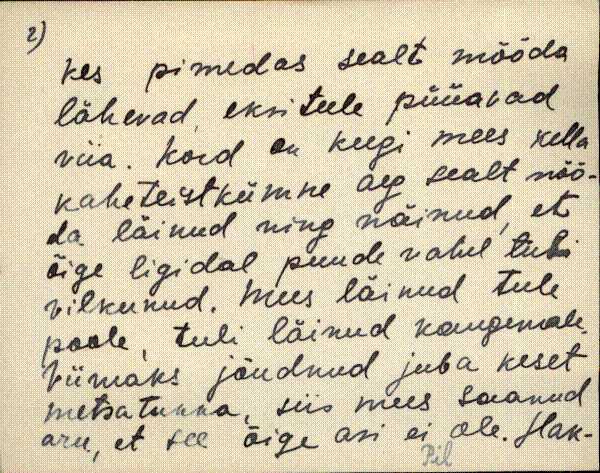 2)
kes pimedas sealt mööda
lähevad, eksitule püüavad
viia. Kord on keegi mees kella
kaheteistkümne aeg sealt möö-
da läinud ning näinud, et
õige ligidal puude vahel tuli
vilkunud. Mees läinud tule
poole, tuli läinud kaugemale.
Viimaks jõudnud juba keset
metsatukka, siis mees saanud
aru, et see õige asi ei ole. Hak-
Pil